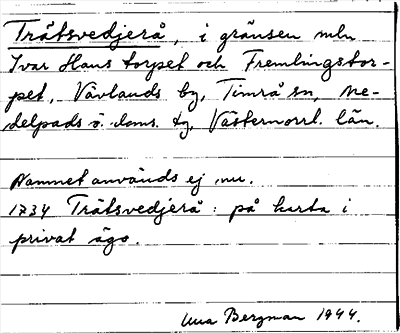 Trätsvedjerå, i gränsen mln
Ivar Hans torpet och Fremlingstor-
pet, Vävlands by, Timrå sn, Me-
delpads ö. doms. tg, Västernorrl. län.
Namnet används ej nu.
1734 Trätsvedjerå: på karta i
privat ägo.
Una Bergman 1944.